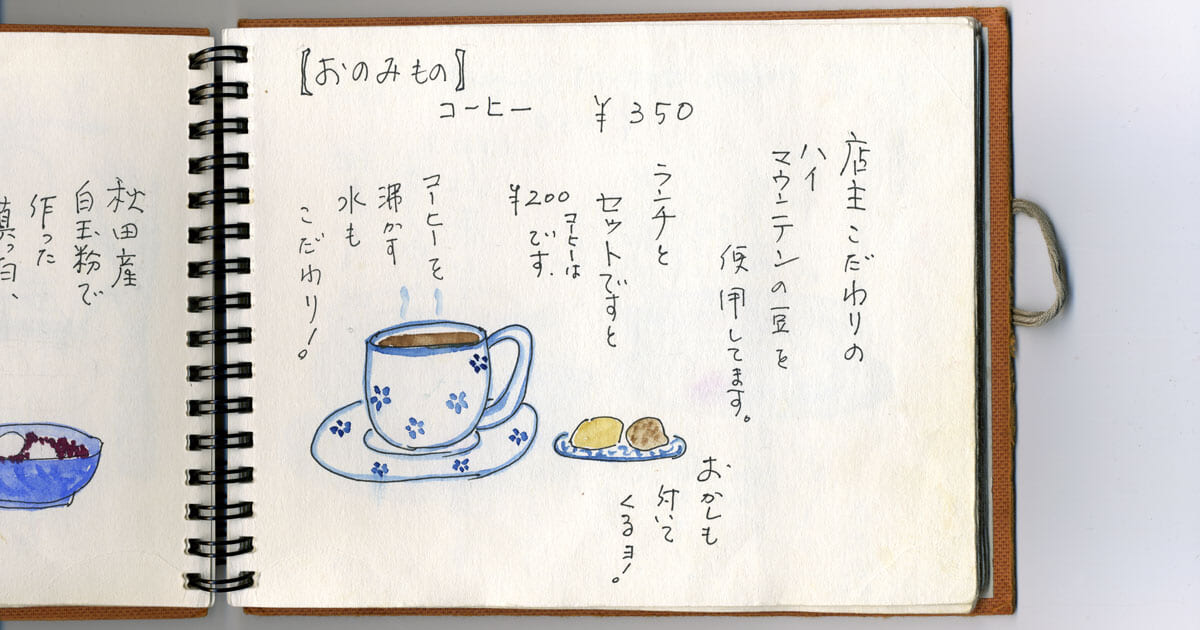 【おのみもの】
コーヒー ¥350
店主こだわりの
ハイ
マウンテンの豆を
使用してます。
ランチと
セットですと
コーヒーは
¥200
です.
コーヒーを
沸かす
水も
こだわり!
おかしも
付いて
くるヨ!
秋田産
白玉粉で
作った
真っ白、